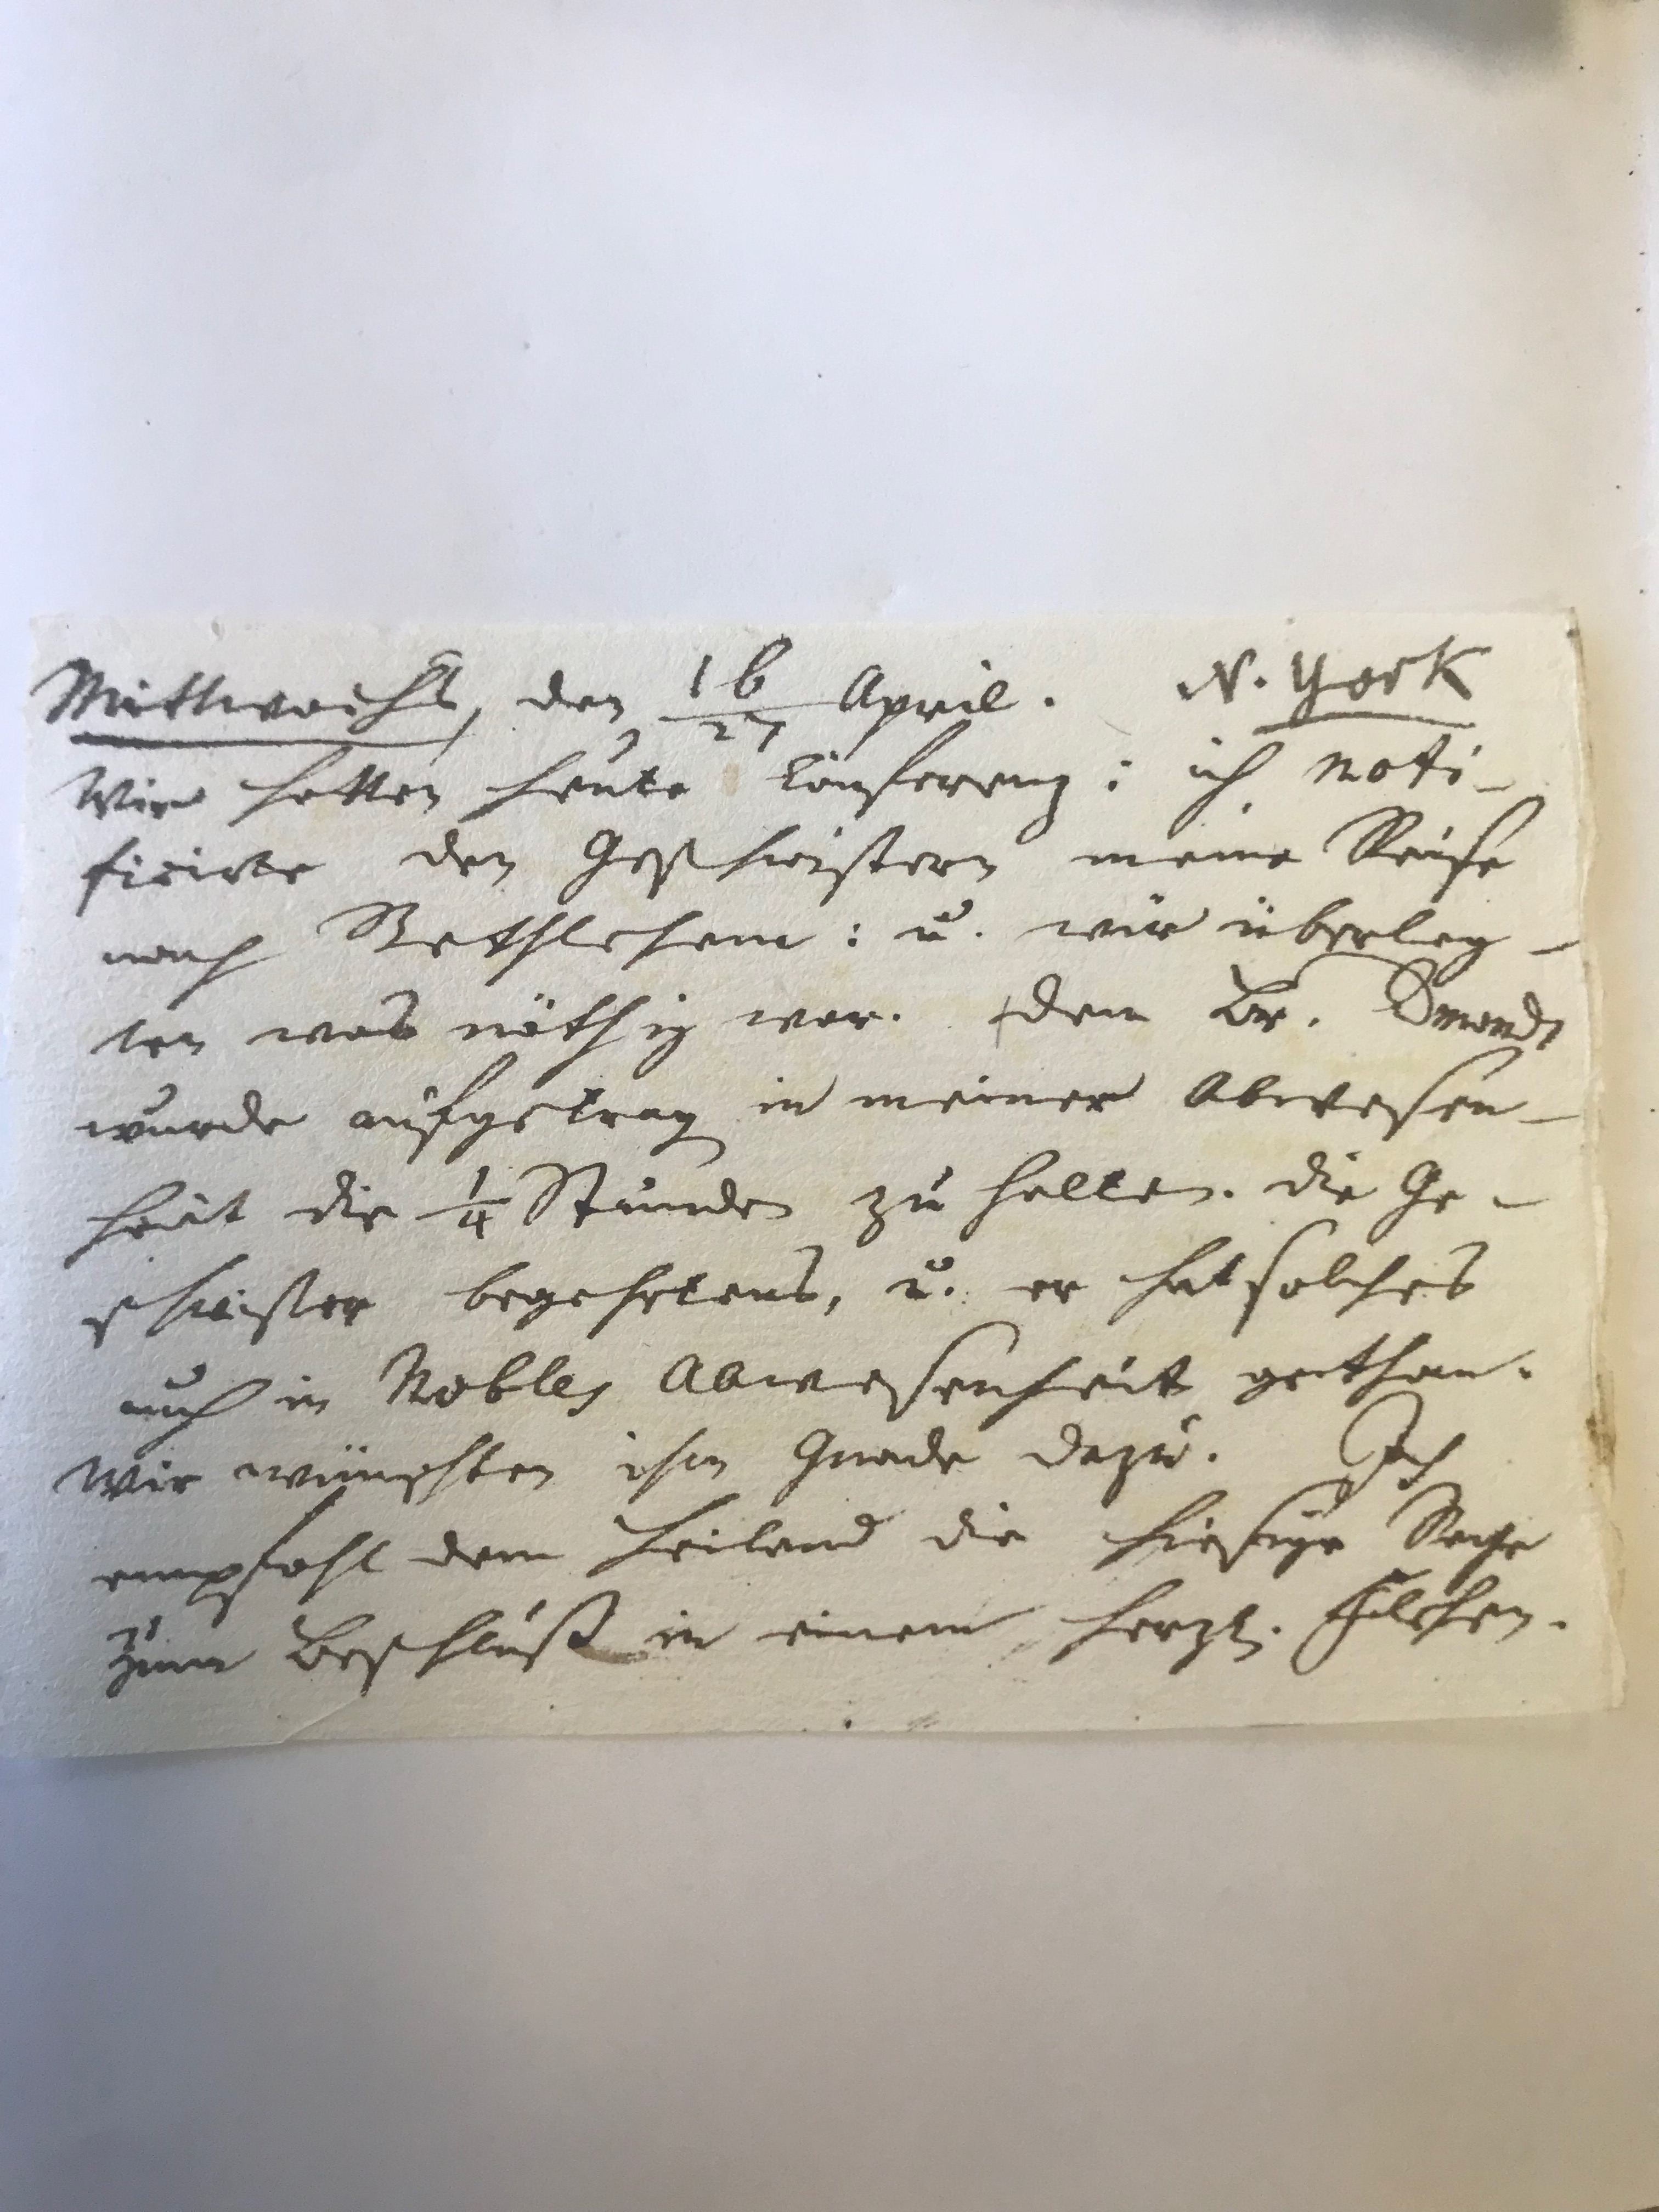 Mittwochs, den 16/27 April. N. York
Wir hatten heute Conferenz: ich noti-
ficirte den Geschwistern meine Reise
nach Bethlehem: u. wir überleg-
ten was nöthig war. dem Br.
wurde aufgetrag in meiner Abwesen-
heit die 1/4 Stunden zu halten. die Ge-
schwister begehrtens, u. er hat solches
auch in Nobles Abwesenheit gethan.
Wir wünschten ihm Gnade dazu. Ich
empfohl dem Heiland die hiesige Sache
zum Beschluß in einem herzl.